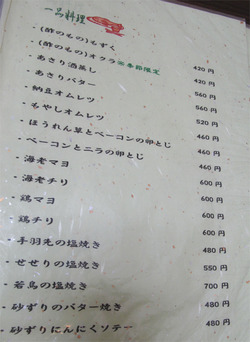 一品料理
・(酢のもの)もずく 420 円
・(酢のもの)オクラ※季節限定 420 円
・あさり酒蒸し 560 円
・あさりバター 560 円
・納豆オムレツ 560 円
・もやしオムレツ 520 円
・ほうれん草とベーコンの卵とじ 460 円
・ベーコンとニラの卵とじ 460 円
・海老マヨ 600 円
・海老チリ 600 円
・鶏マヨ 600 円
・鶏チリ 600 円
・手羽先の塩焼き 480 円
・せせりの塩焼き 550 円
・若鳥の塩焼き 700 円
・砂ずりのバター焼き 480 円
・砂ずりにんにくソテー 480 円